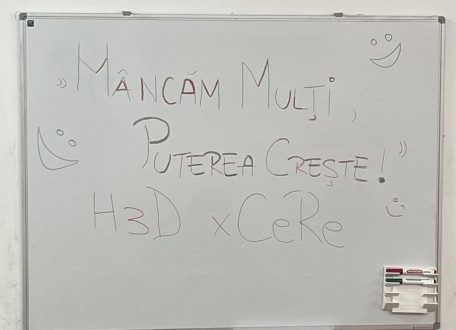 „Mâncăm Mulți,
Puterea Crește!”
H3D x CeRe